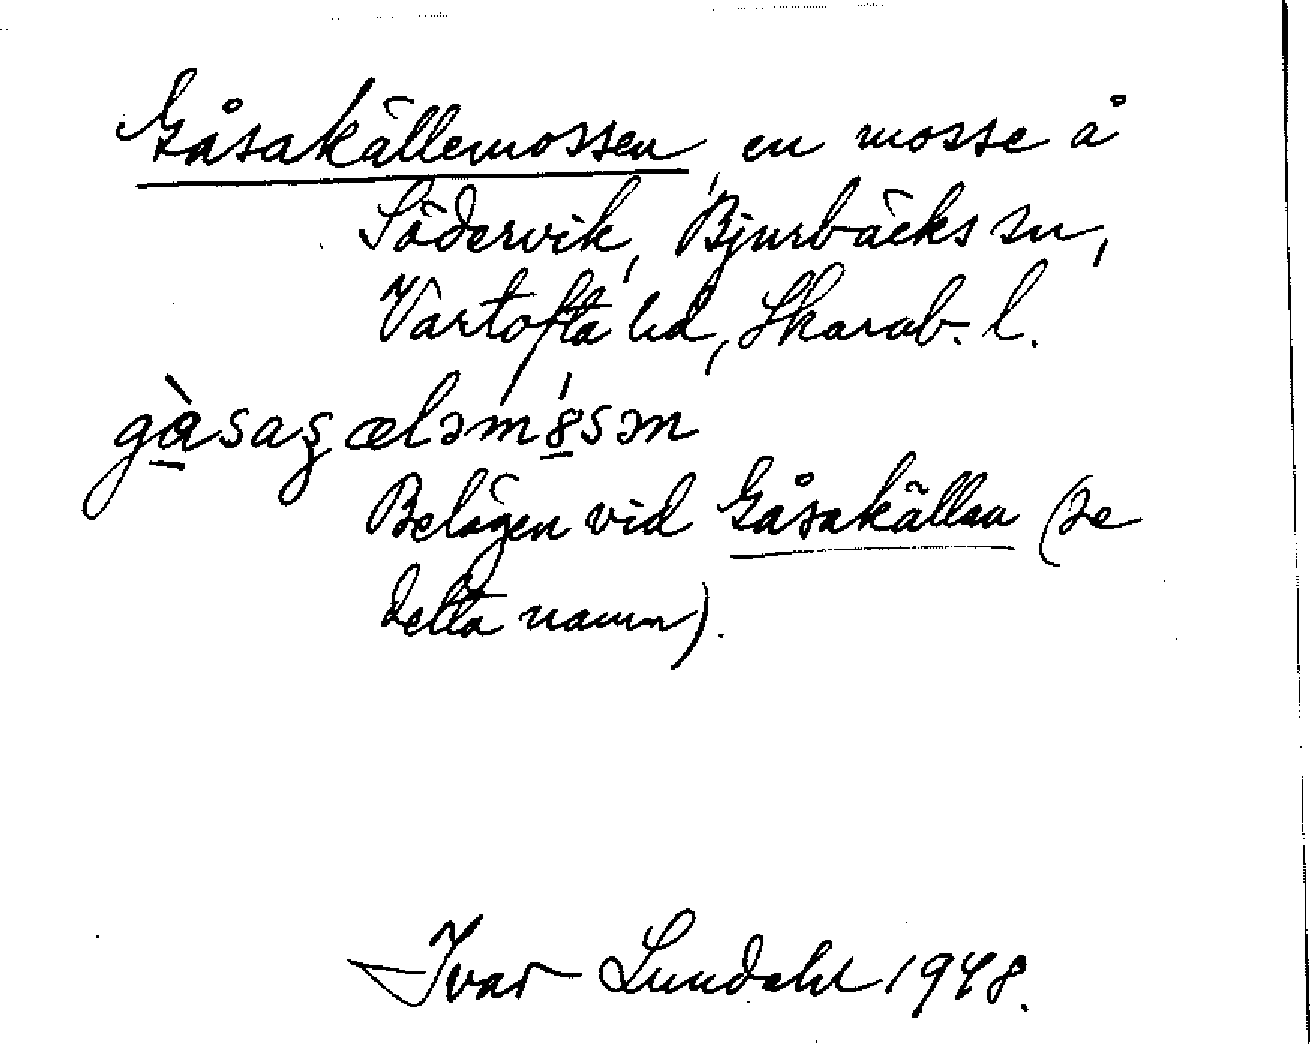 Gåsakällemossen, en mosse å
Södervik, Bjurbäcks sn,
Vartofta hd, Skarab. l.
gàsaȿæləm8sən
Belägen vid Gåsakällan (se
detta namn).
Ivar Lundahl 1948.